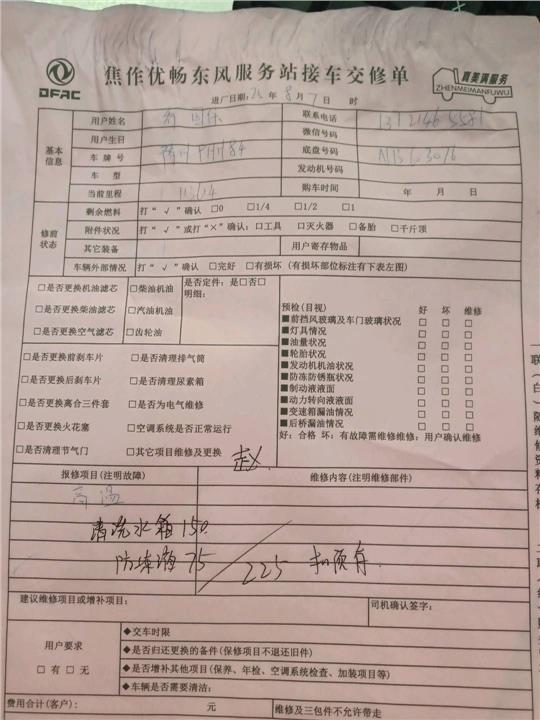 DFAC
焦作优畅东风服务站接车交修单
真美满服务
ZHENMEIMANFUWU
进厂日期: 年 8月7日 时
基本信息
用户姓名
联系电话
用户生日
微信号码
车牌号
底盘号码
车型
发动机号码
当前里程
购车时间 年 月 日
修前状态
剩余燃料 打“√”确认 □0 □1/4 □1/2 □1
附件状况 打“√”或打“×”确认：□工具 □灭火器 □备胎 □千斤顶
其它装备 用户寄存物品
车辆外部情况 打“√”确认 □完好 □有损坏（有损坏部位标注有下表左图）
□是否更换机油滤芯 □柴油机油 是否定件：是□否□
明细：
□是否更换柴油滤芯 □汽油机油
□是否更换空气滤芯 □齿轮油
预检(目视) 好 坏 维修
■前挡风玻璃及车门玻璃状况 □ □ □
■灯具情况 □ □ □
■油量状况 □ □ □
■轮胎状况 □ □ □
■发动机机油状况 □ □ □
■防冻防锈瓶状况 □ □ □
■制动液液面 □ □ □
■动力转向液液面 □ □ □
■变速箱漏油情况 □ □ □
■后桥漏油情况 □ □ □
好：合格 坏：有故障需维修维修：用户确认维修
□是否更换前刹车片 □是否清理排气筒
□是否更换后刹车片 □是否清理尿素箱
□是否更换离合三件套 □是否为电气维修
□是否更换火花塞 □空调系统是否正常运行
□是否清理节气门 □其它项目维修及更换
赵
报修项目(注明故障) 维修内容(注明维修部件)
高温
清洗水箱150
防冻液75
225 扣预存
建议维修项目或增补项目：
司机确认签字：
用户要求
□有□无
◆交车时限
◆是否归还更换的备件(保修项目不退还旧件)
◆是否增补其他项目(保养、年检、空调系统检查、加装项目等)
◆车辆是否需要清洁：
费用合计(客户)： 元 维修及三包件不允许带走